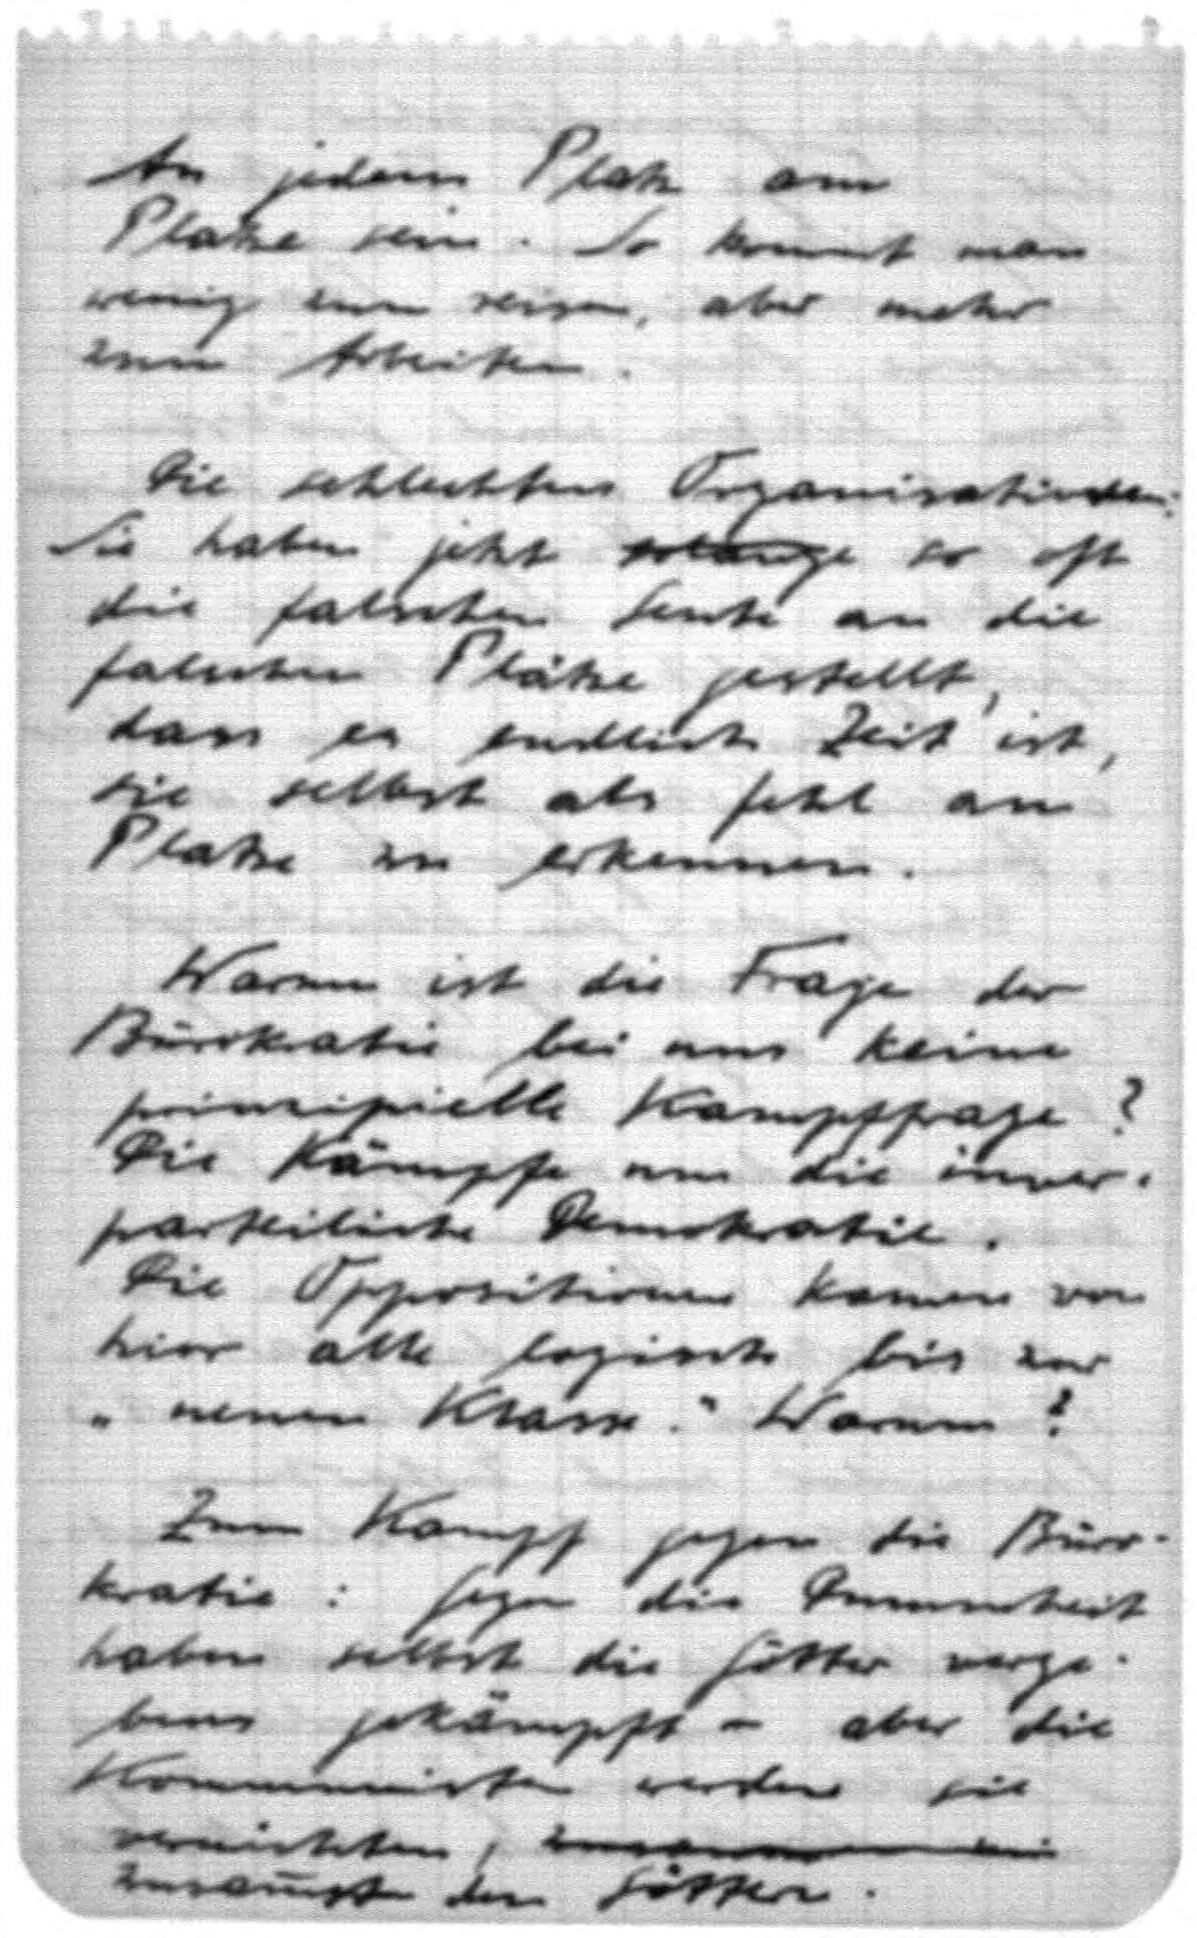 An jedem Platz am
Platze sein. So kommt man
wenig zum reisen, aber mehr
zum Arbeiten.
Die schlechten Organisatoren:
Sie haben jetzt solange so oft
die falschen Leute an die
falschen Plätze gestellt,
dass es endlich Zeit ist,
sie selbst als fehl am
Platze zu erkennen.
Warum ist die Frage der
Bürokratie bei uns keine
prinzipielle Kampffrage?
Die Kämpfe um die inner-
parteiliche Demokratie.
Die Oppositionen kamen von
hier alle logisch bis zur
"neuen Klasse." Warum?
Zum Kampf gegen die Büro-
kratie: Gegen die Dummheit
haben selbst die Götter verge-
bens gekämpft – aber die
Kommunisten werden sie
vernichten,
zusamt den Göttern.